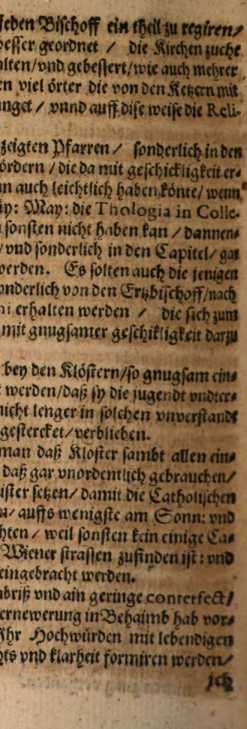 jeden Bischoff ein theil zu regiren/
besser geordnet / die Kirchen zuche
alten/vnd gebessert/wie auch mehrer
en viel örter die von den Ketzern mit
nget / vnnd auff dise weise die Reli-
zeigten Pfarren / sonderlich in den
ördern / die da mit geschickligkeit er-
an auch leichtlich haben könte/ wenn
y: May: die Thologia in Colle-
sonsten nicht haben kan / dannen-
/ vnd sonderlich in den Capitel/ gar
werden. Es solten auch die jenigen
onderlich von den Ertzbischoff/nach
ni erhalten werden / die sich zum
mit gnugsamer geschickligkeit darzu
bey den Klöstern/so gnugsam ein-
t werden/daß sy die jugendt vndter-
nicht lenger in solchen vnverstandt
gestercket/verblieben.
man daß Kloster sambt allen ein-
daß gar vnordentlich gebrauchen/
ister setzen/damit die Catholischen
n/ auffs wenigste am Sonn: vnd
hten/ weil sonsten kein einige Ca-
Wiener strassen zufinden ist: vnd
eingebracht werden.
abriß vnd ain geringe conterfect/
ernewerung in Behaimb hab vor-
Ihr Hochwürden mit lebendigen
hts vnd klarheit formiren werden/
ich